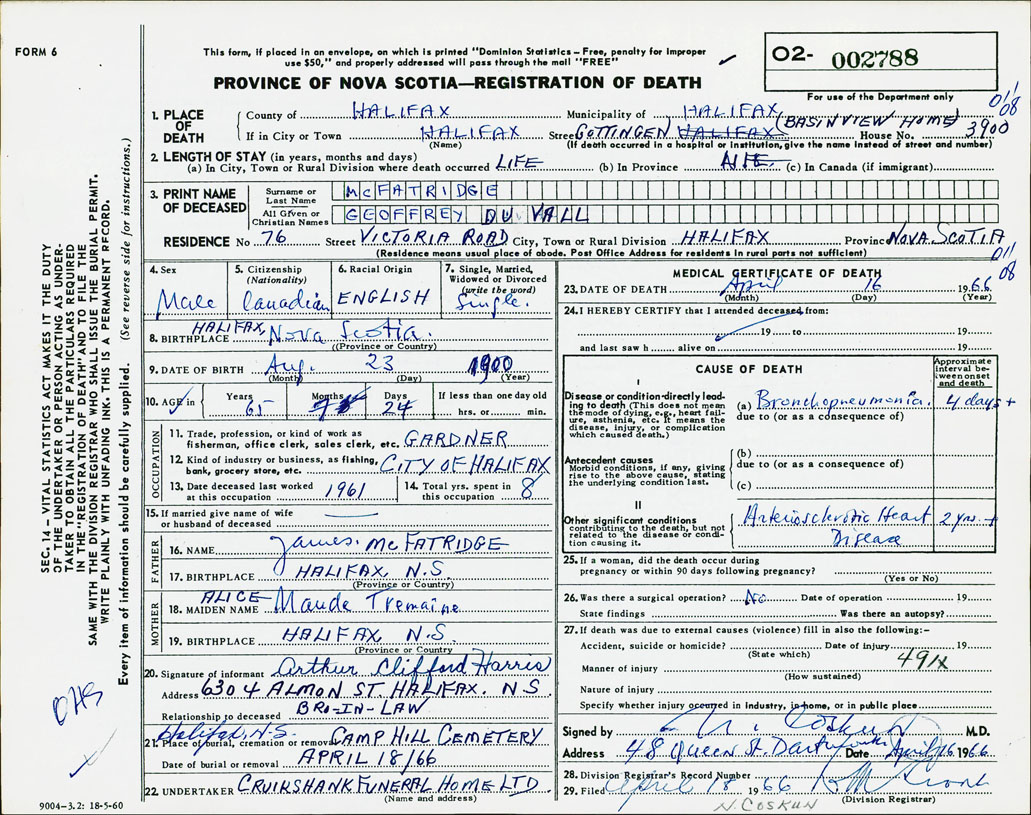 FORM 6
This form, if placed in an envelope, on which is printed "Dominion Statistics – Free, penalty for improper
use $50," and properly addressed will pass through the mail "FREE"
PROVINCE OF NOVA SCOTIA—REGISTRATION OF DEATH
O2- 002788
For use of the Department only
011
08
1. PLACE OF DEATH
County of HALIFAX Municipality of HALIFAX (BASINVIEW HOME)
If in City or Town HALIFAX Street GOTTINGEN HALIFAX House No. 3900
(Name) (If death occurred in a hospital or institution, give the name instead of street and number)
2. LENGTH OF STAY (in years, months and days)
(a) In City, Town or Rural Division where death occurred LIFE (b) In Province LIFE. (c) In Canada (if immigrant)
3. PRINT NAME OF DECEASED
Surname or Last Name McFATRIDGE
All Given or Christian Names GEOFFREY DU VALL
RESIDENCE No 76 Street VICTORIA ROAD City, Town or Rural Division HALIFAX Province NOVA SCOTIA
(Residence means usual place of abode. Post Office Address for residents in rural parts not sufficient)
011
08
4. Sex Male
5. Citizenship (Nationality) Canadian
6. Racial Origin ENGLISH
7. Single, Married, Widowed or Divorced (write the word) Single.
8. BIRTHPLACE HALIFAX, Nova Scotia.
(Province or Country)
9. DATE OF BIRTH Aug. 23 1900
(Month) (Day) (Year)
10. AGE in Years 65 Months 7 Days 24 If less than one day old hrs. or min.
OCCUPATION
11. Trade, profession, or kind of work as
fisherman, office clerk, sales clerk, etc. GARDNER
12. Kind of industry or business, as fishing,
bank, grocery store, etc. CITY OF HALIFAX
13. Date deceased last worked at this occupation 1961
14. Total yrs. spent in this occupation 8
15. If married give name of wife
or husband of deceased
FATHER
16. NAME James. McFATRIDGE
17. BIRTHPLACE HALIFAX, N.S
(Province or Country)
MOTHER
18. MAIDEN NAME ALICE Maude Tremaine
19. BIRTHPLACE HALIFAX, N.S.
(Province or Country)
20. Signature of informant Arthur Clifford Harris
Address 6304 ALMON ST. HALIFAX. N S
Relationship to deceased BRO-IN-LAW
Halifax, N.S.
21. Place of burial, cremation or removal CAMP HILL CEMETERY
Date of burial or removal APRIL 18/66
22. UNDERTAKER CRUIKSHANK FUNERAL HOME LTD
(Name and address)
MEDICAL CERTIFICATE OF DEATH
23. DATE OF DEATH April 16 1966
(Month) (Day) (Year)
24. I HEREBY CERTIFY that I attended deceased from:
19 to 19
and last saw h alive on 19
CAUSE OF DEATH
Approximate interval between onset and death
I
Disease or condition directly leading to death (This does not mean the mode of dying, e.g., heart failure, asthenia, etc. It means the disease, injury, or complication which caused death.)
(a) Bronchopneumonia. 4 days +
due to (or as a consequence of)
Antecedent causes
Morbid conditions, if any, giving rise to the above cause, stating the underlying condition last.
(b)
due to (or as a consequence of)
(c)
II
Other significant conditions
contributing to the death, but not related to the disease or condition causing it.
Arteriosclrotic Heart Disease 2 yrs. +
25. If a woman, did the death occur during
pregnancy or within 90 days following pregnancy?
(Yes or No)
26. Was there a surgical operation? No Date of operation 19
State findings Was there an autopsy?
27. If death was due to external causes (violence) fill in also the following:–
Accident, suicide or homicide? Date of injury 19
(State which) 491x
Manner of injury
(How sustained)
Nature of injury
Specify whether injury occurred in industry, in home, or in public place
Signed by N. Coskun M.D.
Address 48 Queen St. Dartmouth Date April 16 1966
28. Division Registrar's Record Number
29. Filed April 18 1966
(Division Registrar)
N. COSKUN
SEC. 14 – VITAL STATISTICS ACT MAKES IT THE DUTY
OF THE UNDERTAKER OR PERSON ACTING AS UNDER-
TAKER TO OBTAIN ALL THE PARTICULARS REQUIRED
IN THE "REGISTRATION OF DEATH" AND TO FILE THE
SAME WITH THE DIVISION REGISTRAR WHO SHALL ISSUE THE BURIAL PERMIT.
WRITE PLAINLY WITH UNFADING INK. THIS IS A PERMANENT RECORD.
Every item of information should be carefully supplied. (See reverse side for instructions.)
OHS
9004-3.2: 18-5-60